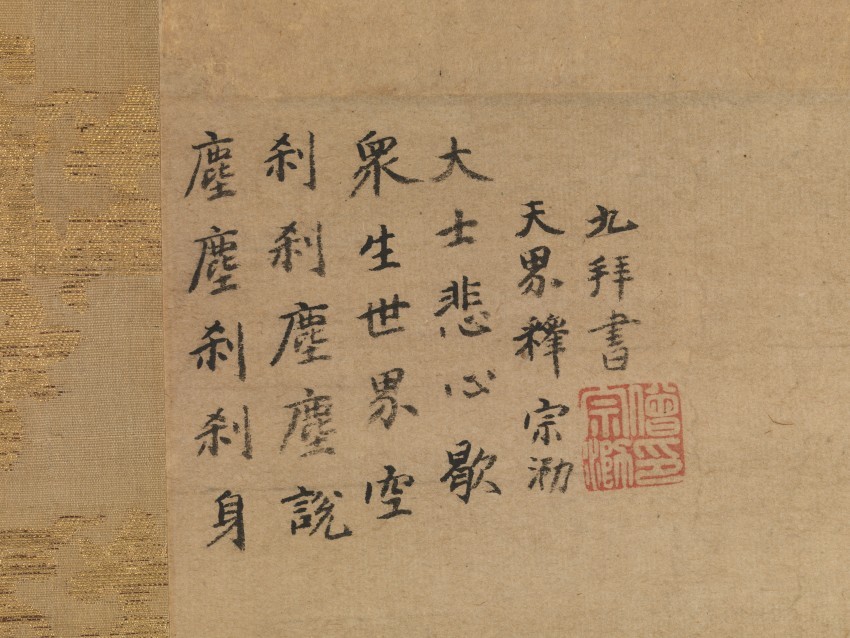 塵塵刹刹身
刹刹塵塵說
衆生世界空
大士悲心歇
天界釋宗泐
九拜書
僧印
宗泐